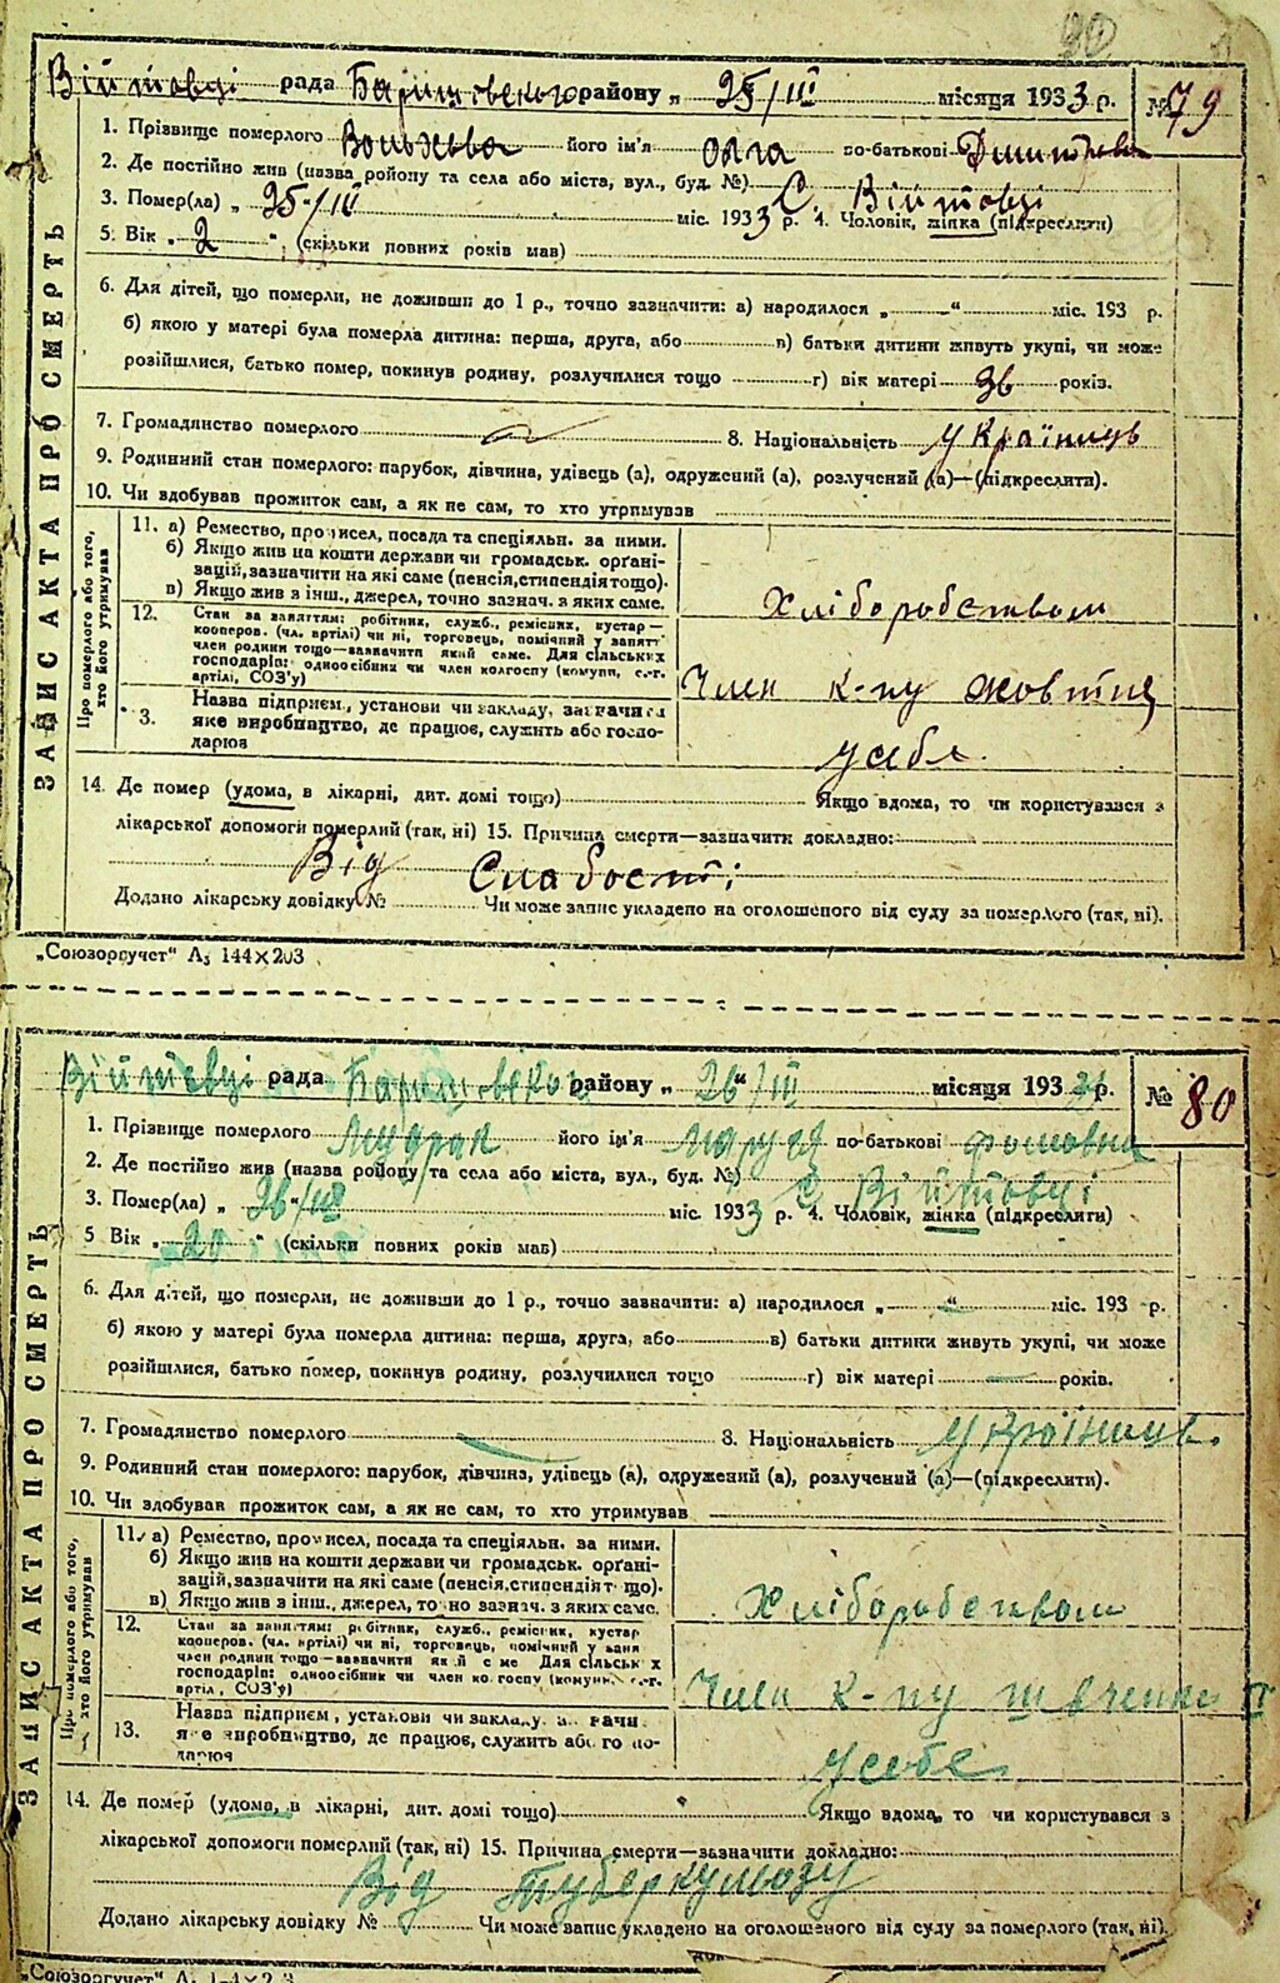 90
Війтовці рада Баришовського району „ 25/III місяця 1933 р. № 79
1. Прізвище померлого його ім'я Ольга по-батькові
2. Де постійно жив (назва району та села або міста, вул., буд. №) С. Війтовці
3. Помер(ла) „ 25"/III міс. 1933 р. 4. Чоловік, жінка (підкреслити)
5. Вік „ 2 " (скільки повних років мав)
6. Для дітей, що померли, не доживши до 1 р., точно зазначити: а) народилося „ " міс. 193 р.
б) якою у матері була померла дитина: перша, друга, або в) батьки дитини живуть укупі, чи може
розійшлися, батько помер, покинув родину, розлучилися тощо г) вік матері 36 років.
7. Громадянство померлого 8. Національність Українець
9. Родинний стан померлого: парубок, дівчина, удівець (а), одружений (а), розлучений (а)—(підкреслити).
10. Чи здобував прожиток сам, а як не сам, то хто утримував
ЗАПИС АКТА ПРО СМЕРТЬ
Про померлого або того, хто його утримував
11. а) Ремество, промисел, посада та спеціяльн. за ними.
б) Якщо жив на кошти держави чи громадськ. орґані-
зацій, зазначити на які саме (пенсія, стипендія тощо).
в) Якщо жив з інш., джерел, точно зазнач. з яких саме.
Хліборобством
12. Стан за заняттям: робітник, служб., ремісник, кустар—
кооперов. (чл. артілі) чи ні, торговець, помічний у занятт
член родини тощо—зазначити який саме. Для сільських
господарів: одноосібник чи член колгоспу (комуни, с.-г.
артілі, СОЗ'у)
Член к-пу
13. Назва підприєм., установи чи закладу, зазначи
яке виробництво, де працює, служить або госпо-
дарює
у себе
14. Де помер (удома, в лікарні, дит. домі тощо) Якщо вдома, то чи користувався з
лікарської допомоги померлий (так, ні) 15. Причина смерти—зазначити докладно:
Від Слабості
Додано лікарську довідку № Чи може запис укладено на оголошеного від суду за померлого (так, ні).
„Союзоргучет" А₅ 144×203
Війтовці рада Баришовсько району „ 26"/III місяця 1933 р. № 80
1. Прізвище померлого його ім'я по-батькові
2. Де постійно жив (назва району та села або міста, вул., буд. №) С Війтовці
3. Помер(ла) „ 26"/III міс. 1933 р. 4. Чоловік, жінка (підкреслити)
5 Вік „ 20 " (скільки повних років мав)
6. Для дітей, що померли, не доживши до 1 р., точно зазначити: а) народилося „ " міс. 193 р.
б) якою у матері була померла дитина: перша, друга, або в) батьки дитини живуть укупі, чи може
розійшлися, батько помер, покинув родину, розлучилися тощо г) вік матері — років.
7. Громадянство померлого 8. Національність Українець.
9. Родинний стан померлого: парубок, дівчина, удівець (а), одружений (а), розлучений (а)—(підкреслити).
10. Чи здобував прожиток сам, а як не сам, то хто утримував
ЗАПИС АКТА ПРО СМЕРТЬ
Про померлого або того, хто його утримував
11. а) Ремество, промисел, посада та спеціяльн. за ними.
б) Якщо жив на кошти держави чи громадськ. орґані-
зацій, зазначити на які саме (пенсія, стипендія т що).
в) Якщо жив з інш., джерел, то но зазнач. з яких саме.
Хліборобством
12. Стан за заняттям: робітник, служб., ремісник, кустар
кооперов. (чл. артілі) чи ні, торговець, помічний у заня
член родини тощо—зазначити як й с ме Для сільськ х
господарів: одноосібник чи член ко госпу (комун
артіл, СОЗ'у)
Член к-пу
13. Назва підприєм, установи чи закладу
я е виробництво, де працює, служить або го по-
дарює
у себе
14. Де помер (удома, в лікарні, дит. домі тощо) Якщо вдома, то чи користувався з
лікарської допомоги померлий (так, ні) 15. Причина смерти—зазначити докладно:
Від Туберкульозу
Додано лікарську довідку № Чи може запис укладено на оголошеного від суду за померлого (так, ні).
„Союзоргучет"